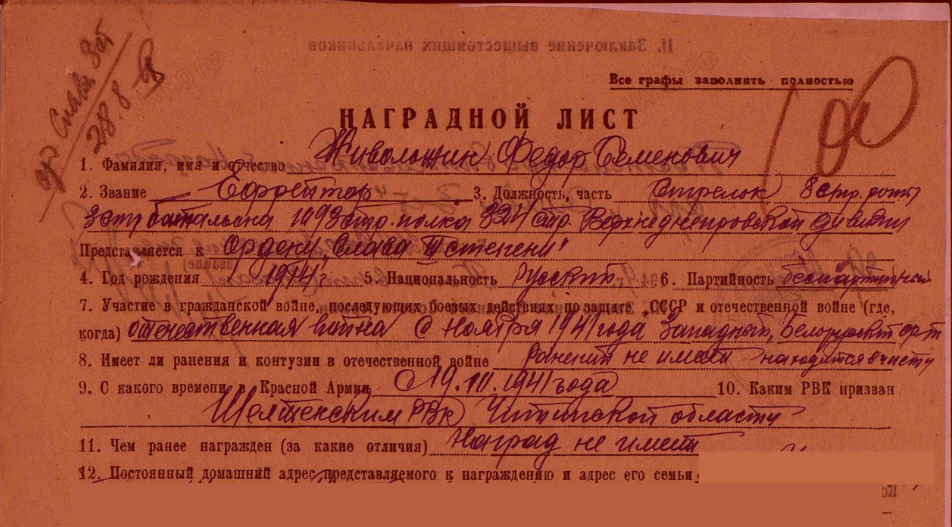 II. Заключение вышестоящих начальников
Все графы заполнять полностью
ор Слава 3ст
28.8.
100
НАГРАДНОЙ ЛИСТ
1. Фамилия, имя и отчество Федор Семенович
2. Звание Ефрейтор 3. Должность, часть Стрелок 8 стр. роты
3 стр батальона 1093 стр. полка 324 стр. Верхнеднепровской дивизии
Представляется к Ордену "Слава III степени"
4. Год рождения 1914г 5. Национальность Русский 6. Партийность беспартийный
7. Участие в гражданской войне, последующих боевых действиях по защите СССР и отечественной войне (где,
когда) отечественная война с ноября 1941 года Западный, Белорусский фронт
8. Имеет ли ранения и контузии в отечественной войне Ранений не имеет находится в части
9. С какого времени в Красной Армии С 19. 1941 года 10. Каким РВК призван
РВК Читинской области
11. Чем ранее награжден (за какие отличия) Наград не имеет
12. Постоянный домашний адрес представляемого к награждению и адрес его семьи